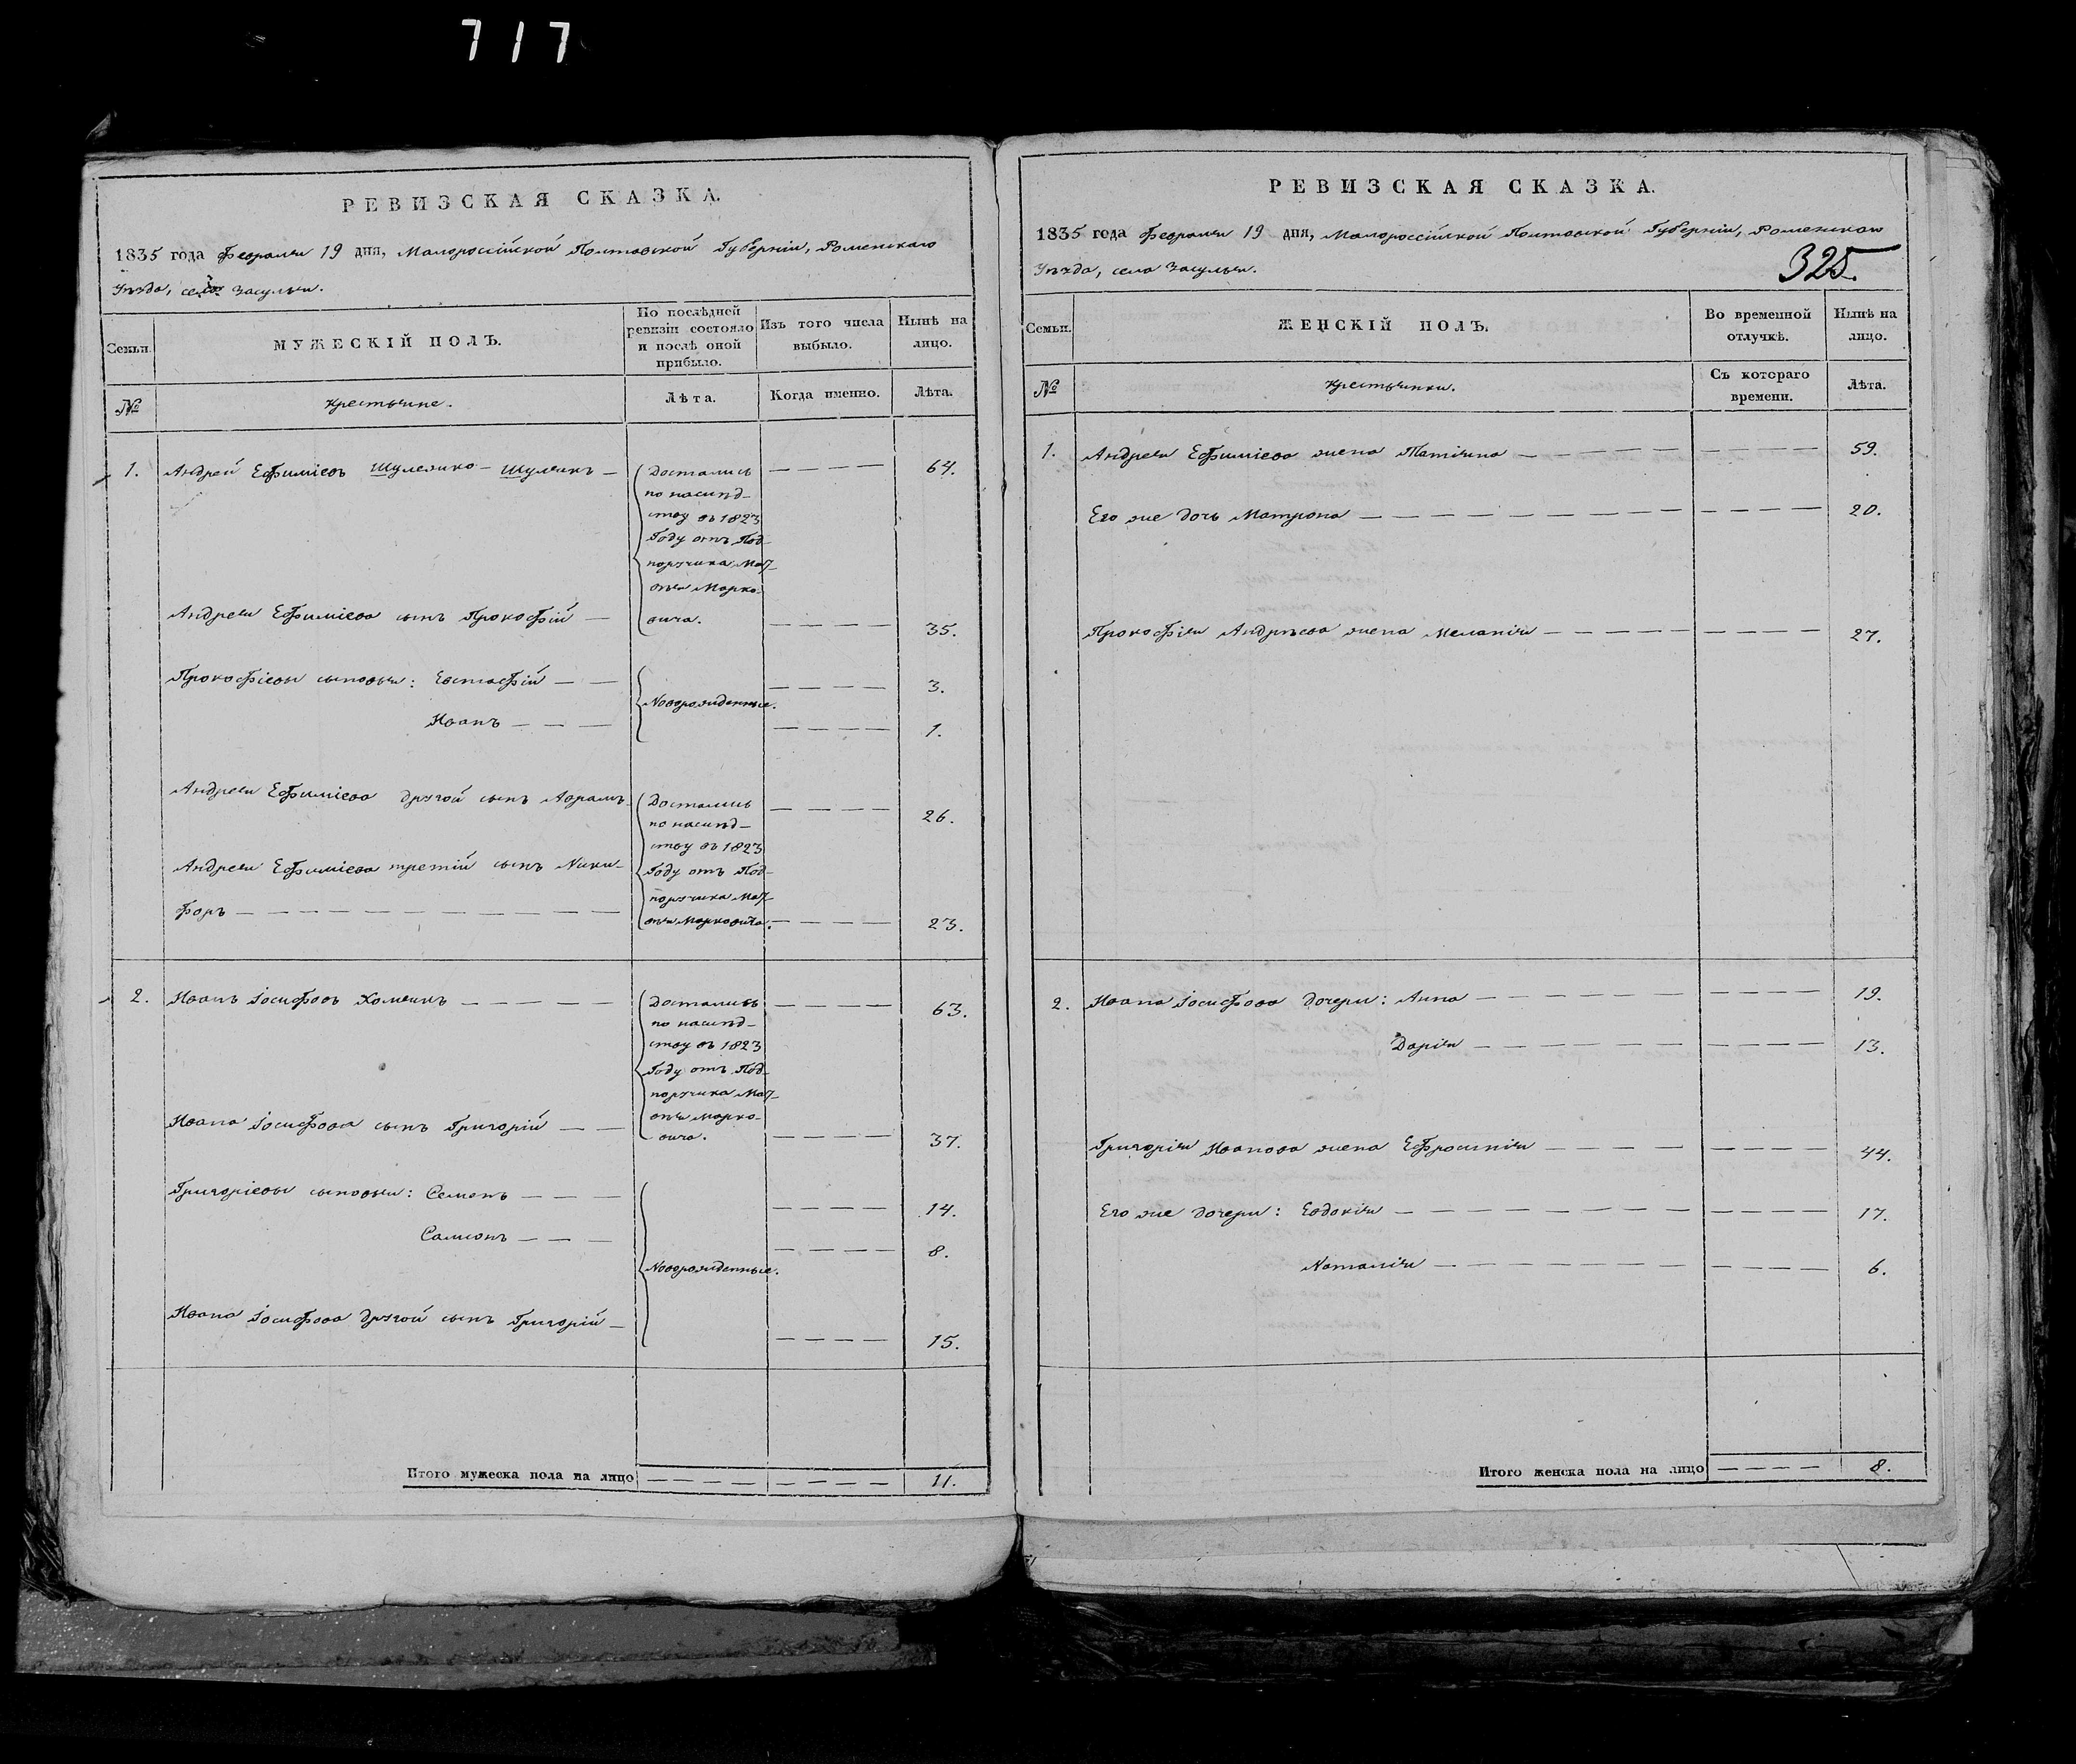 717
РЕВИЗСКАЯ СКАЗКА.
1835 года Февраля 19 дня, Малороссійской Полтавской Губерніи, Роменскаго
Уѣзда, села Засулья.
Семьи.
МУЖЕСКІЙ ПОЛЪ.
По послѣдней
ревизіи состояло
и послѣ оной
прибыло.
Изъ того числа
выбыло.
Нынѣ на
лицо.
№
Крестьяне.
Лѣта.
Когда именно.
Лѣта.
1. Андрей Ефиміевъ Шулежко - Шулякъ — Достались — — — — 64.
по наслѣд-
ству въ 1823
Году отъ Под-
поручика
Марко-
Андрея Ефиміева сынъ Прокофій — вича. — — — — 35.
Прокофіевы сыновья: Евстафій — — — — — — 3.
Новорожденные.
Иванъ — — — — — — — 1.
Андрея Ефиміева другой сынъ Аврамъ — Достались — — — — 26.
по наслѣд-
ству въ 1823
Андрея Ефиміева третій сынъ Ники- Году отъ Под-
поручика
форъ — — — — — — — — — — Марковича. — — — — 23.
2. Иванъ Іосифовъ Хомякъ — — — — Достались — — — — 63.
по наслѣд-
ству въ 1823
Году отъ Под-
поручика
Марко-
Ивана Іосифова сынъ Григорій — — вича. — — — — 37.
Григоріевы сыновья: Семенъ — — — — — — — 14.
Самсонъ — — — — — — — 8.
Новорожденные.
Ивана Іосифова другой сынъ Григорій — — — — — 15.
Итого мужеска пола на лицо — — — — — — — — 11.
РЕВИЗСКАЯ СКАЗКА.
1835 года Февраля 19 дня, Малороссійской Полтавской Губерніи, Роменскаго
Уѣзда, села Засулья.
325.
Семьи.
ЖЕНСКІЙ ПОЛЪ.
Во временной
отлучкѣ.
Нынѣ на
лицо.
№
Крестьянки.
Съ котораго
времени.
Лѣта.
1. Андрея Ефиміева жена Татіяна — — — — — 59.
Его же дочь Матрона — — — — — — — — — — — — — 20.
Прокофія Андрѣева жена Меланія — — — — — — — — 27.
2. Ивана Іосифова дочери: Анна — — — — — — — — — — 19.
Дарія — — — — — — — — — — 13.
Григорія Иванова жена Ефросинія — — — — — — — — 44.
Его же дочери: Евдокія — — — — — — — — — — — — 17.
Наталія — — — — — — — — — — — 6.
Итого женска пола на лицо — — — — 8.